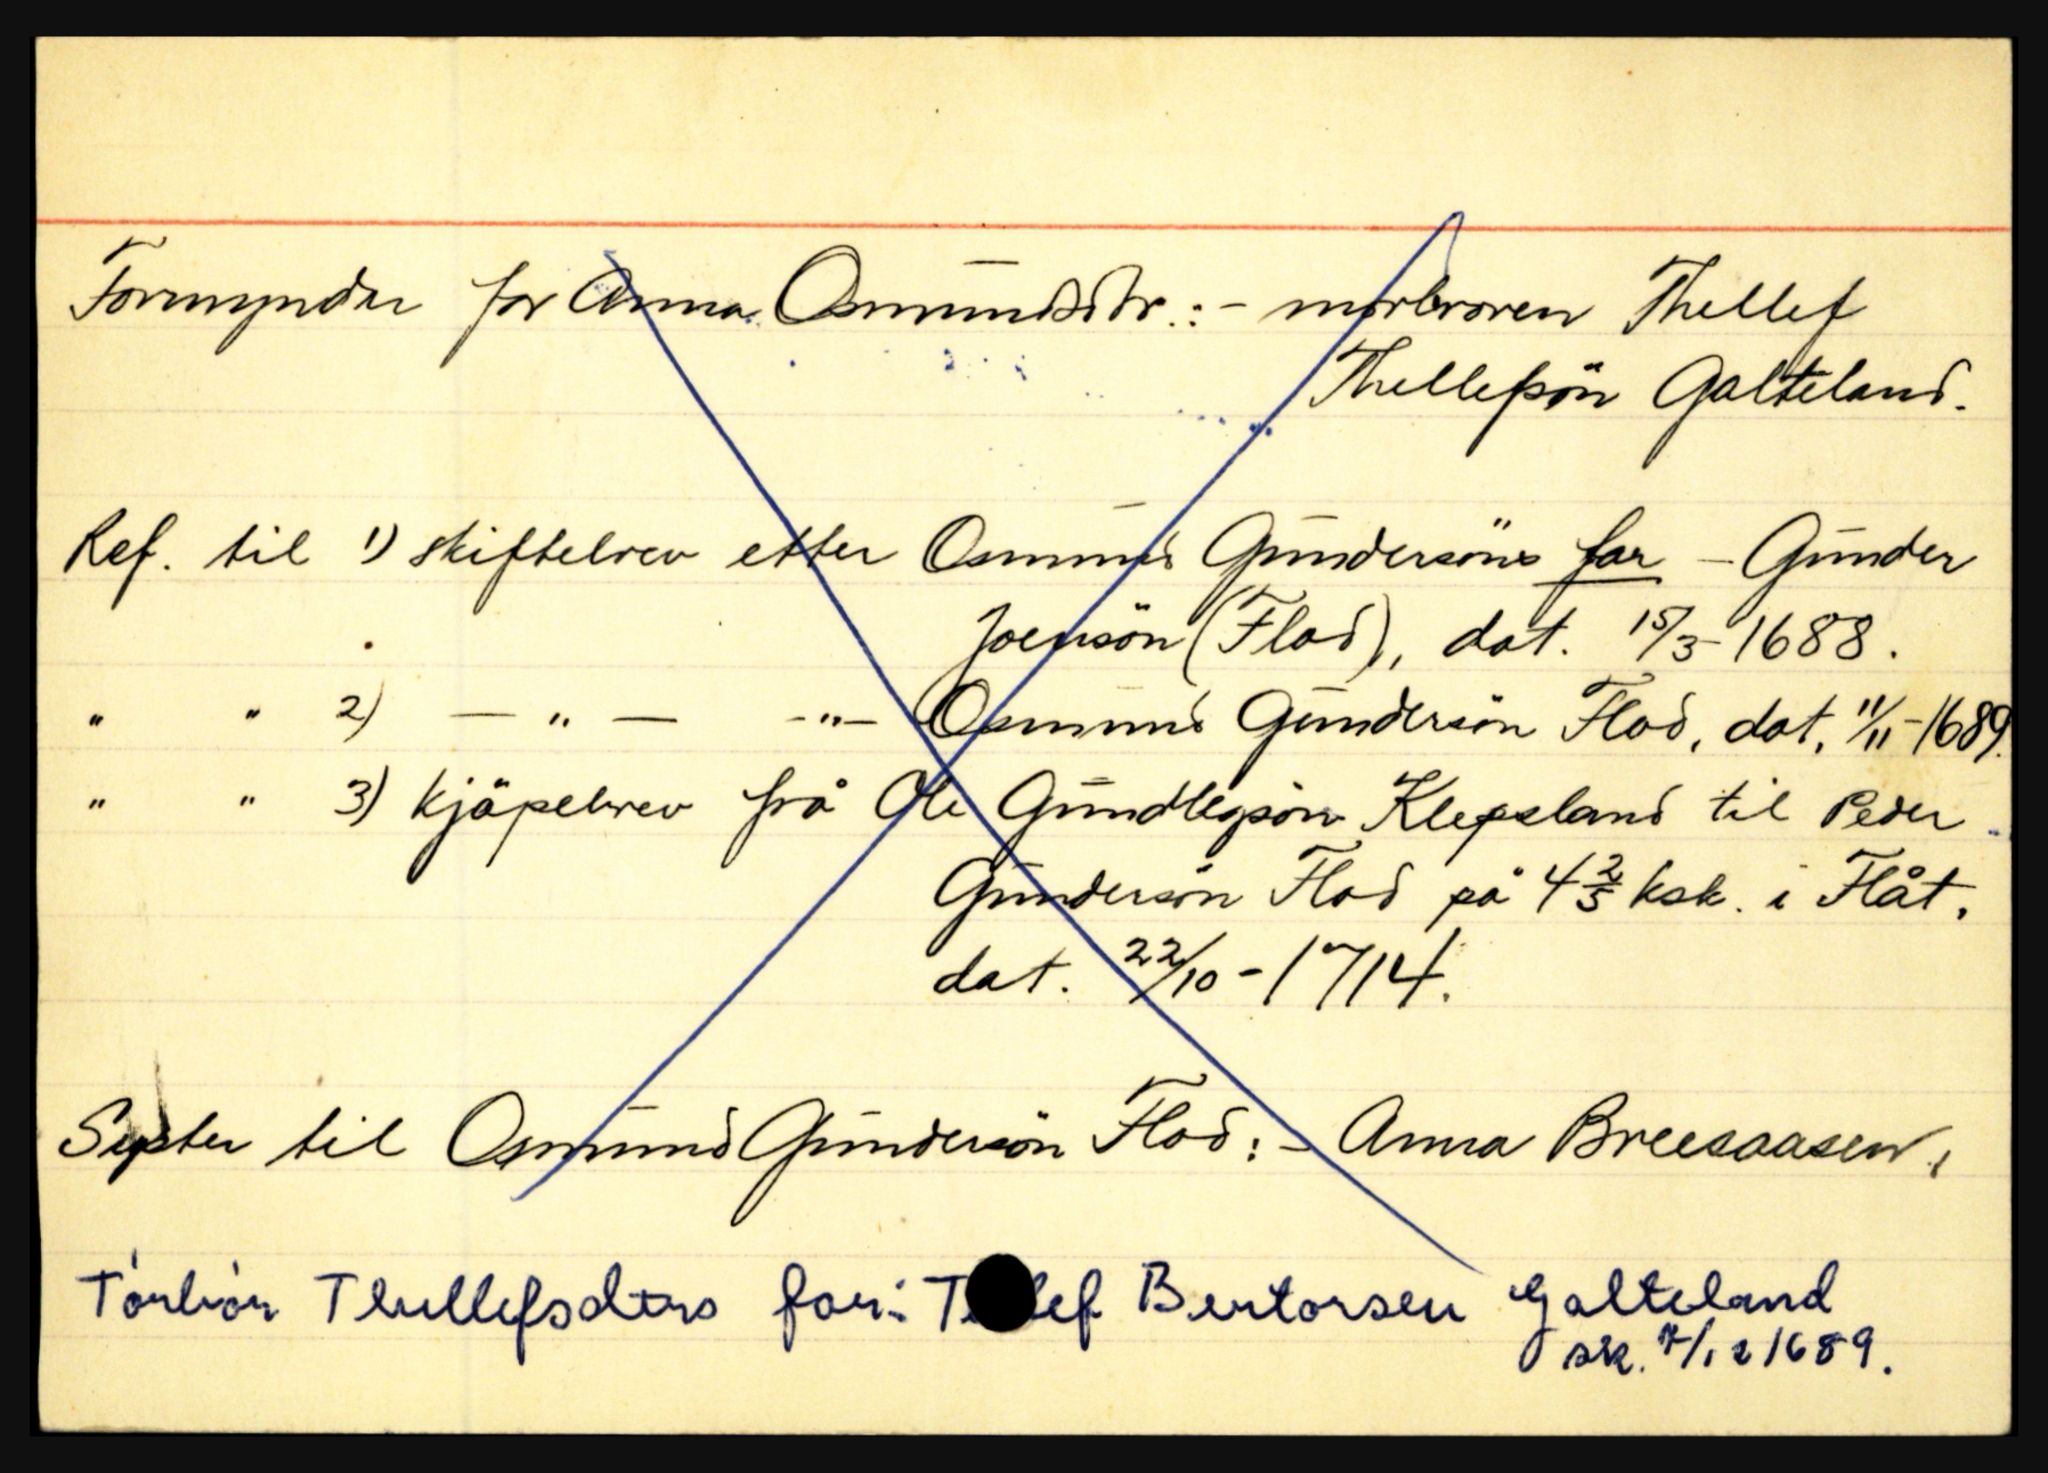 Formynder for Anna Osmundsdtr.: - morbroren Thellef
Thellefsön Galteland.
Ref. til 1) skiftebrev etter Osmund Gundersöns far - Gunder
Joensön (Flod), dat. 15/3-1688.
" " 2) — " — -"- Osmund Gundersön Flod, dat. 11/11-1689.
" " 3) kjöpebrev frå Ole Gundlegsön Klepsland til Peder
Gundersön Flod på 4 2/3 ksk. i Flåt,
dat. 22/10-1714.
Syster til Osmund Gundersön Flod: - Anna Breesaasen,
Torbiör Thellefsdtrs far: lef Bertorsen Galteland
sk. /12 1689.